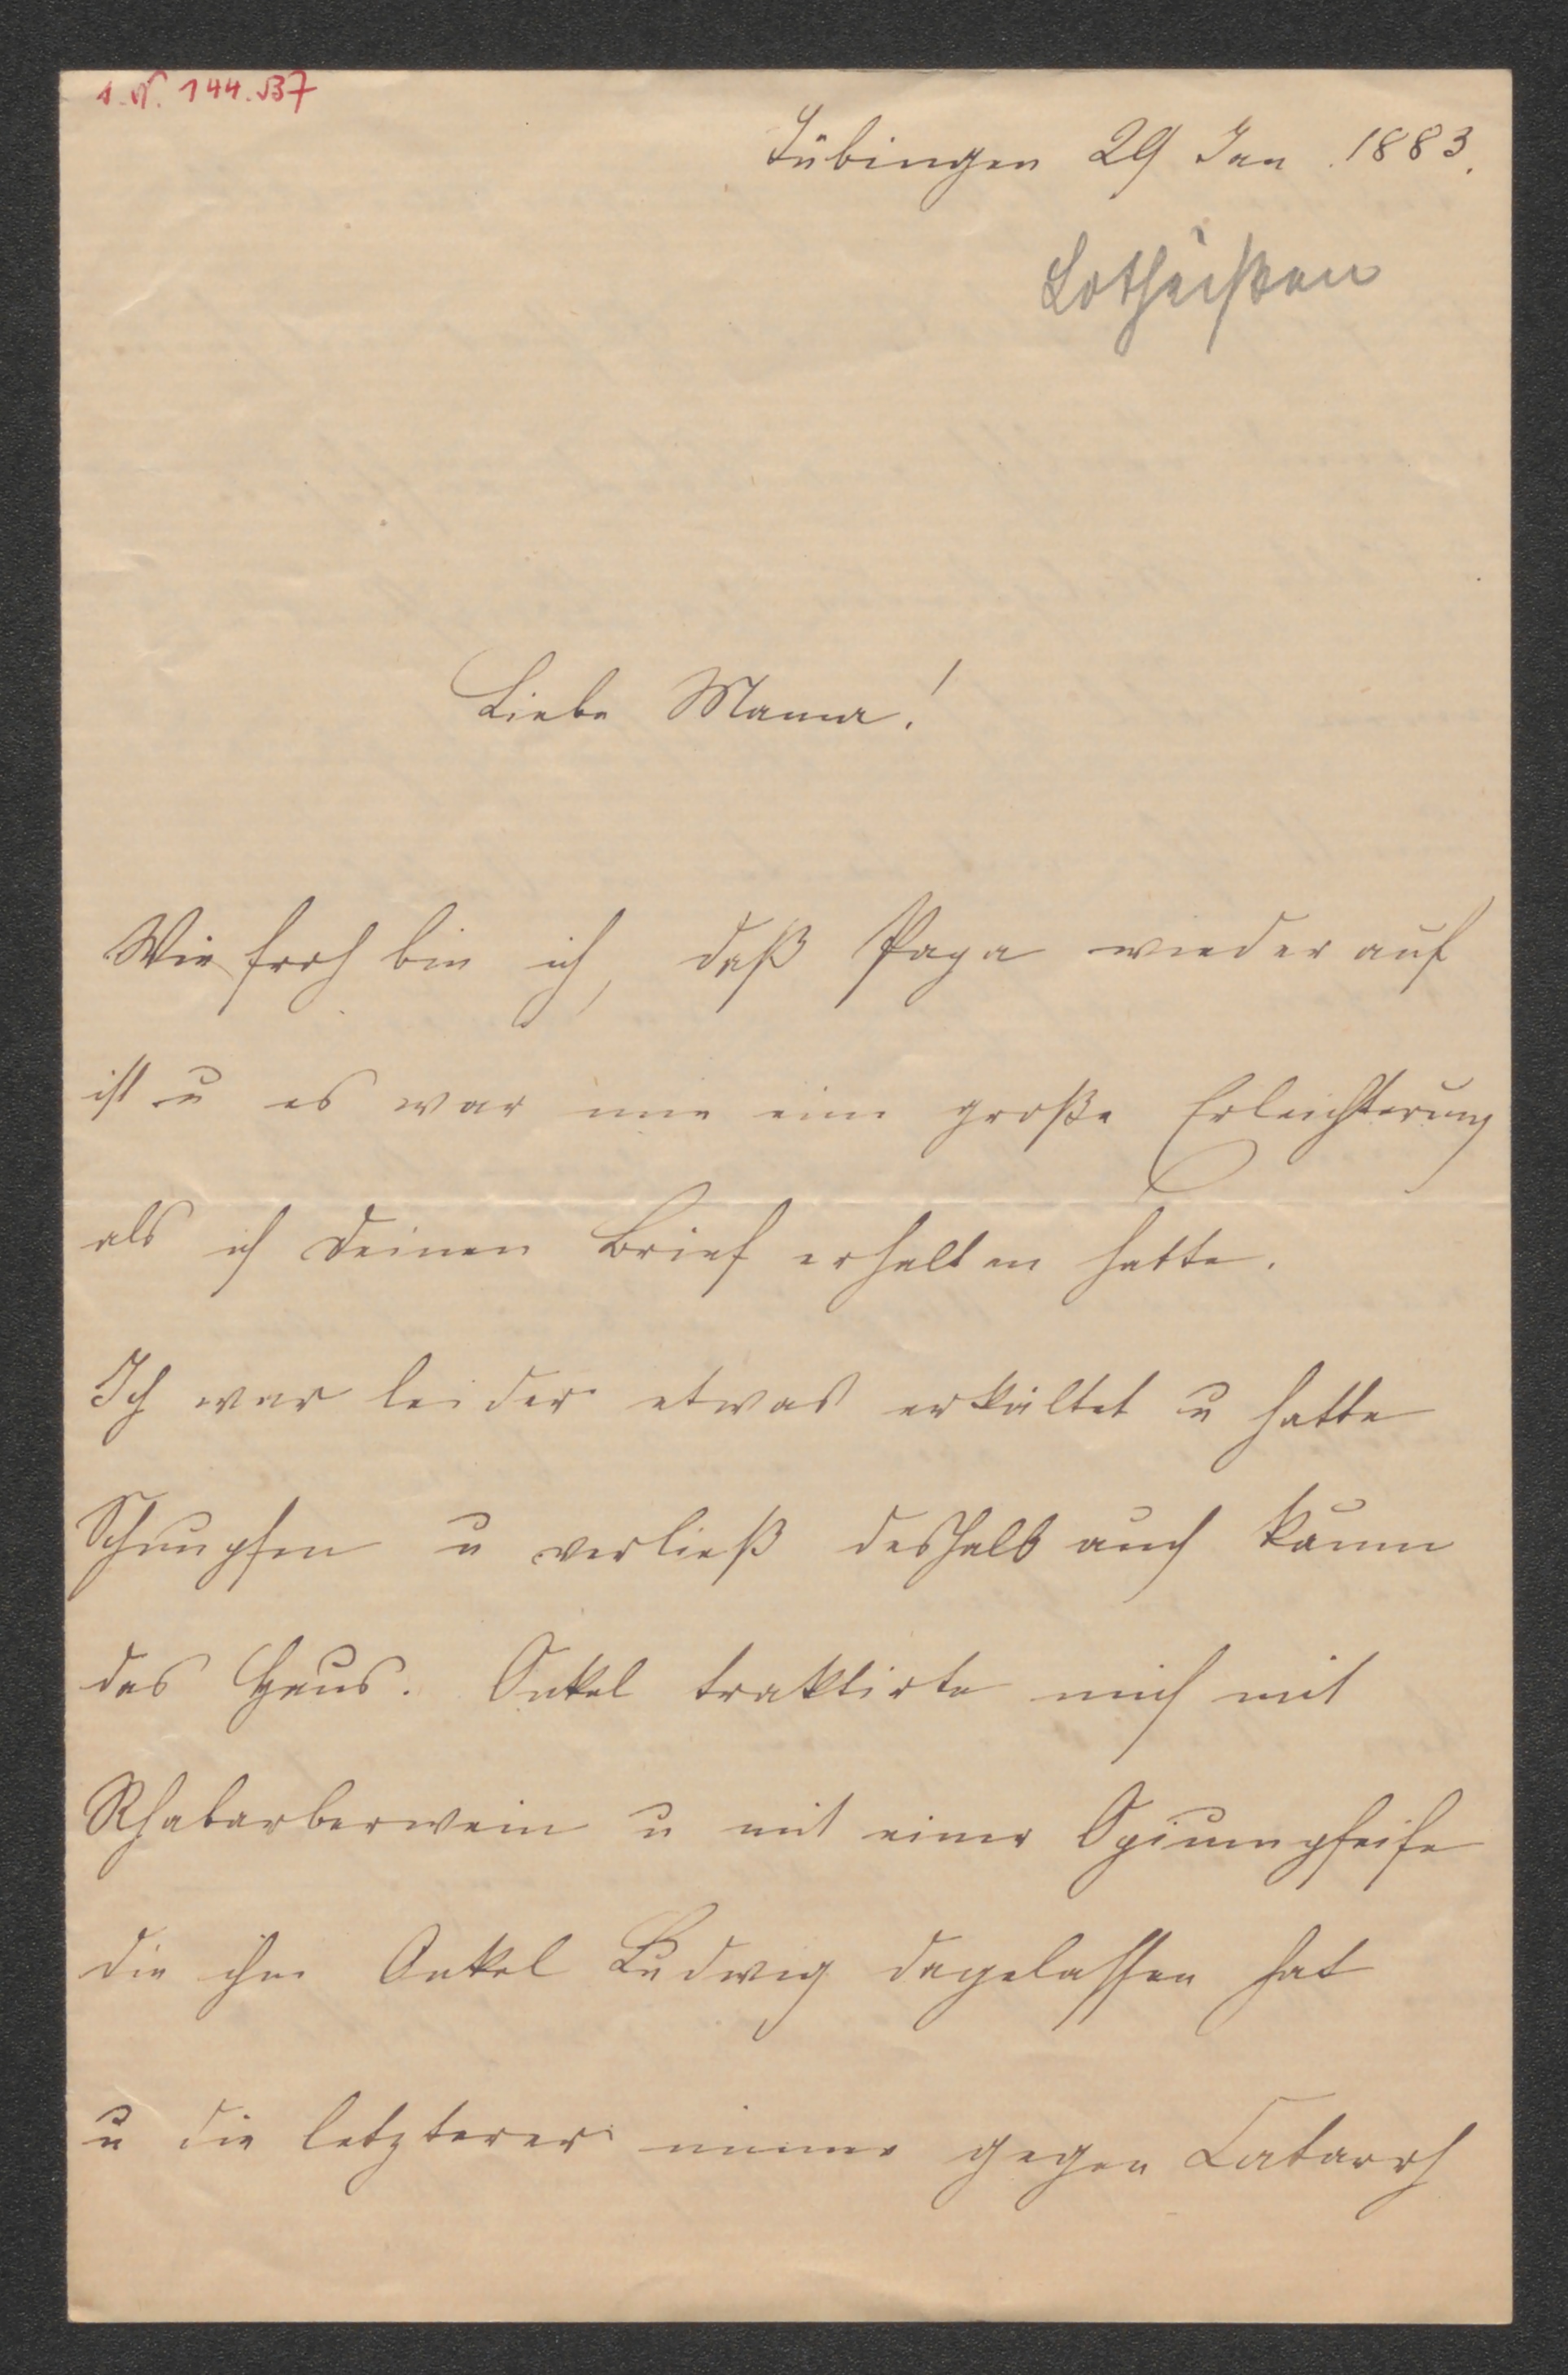 I.N. 144.537
Tübingen 29 Jan. 1883.
Lotheißen
Liebe Mama!
Wie froh bin ich, daß Papa wieder auf
ist u es war mir eine große Erleichterung
als ich Deinen Brief erhalten hatte.
Ich war leider etwas erkältet u hatte
Schnupfen u verließ deshalb auch kaum
das Haus. Onkel traktirte mich mit
Rhabarberwein u mit einer Opiumpfeife
die ihm Onkel Ludwig dagelassen hat
u die letzterer immer gegen Catarrh